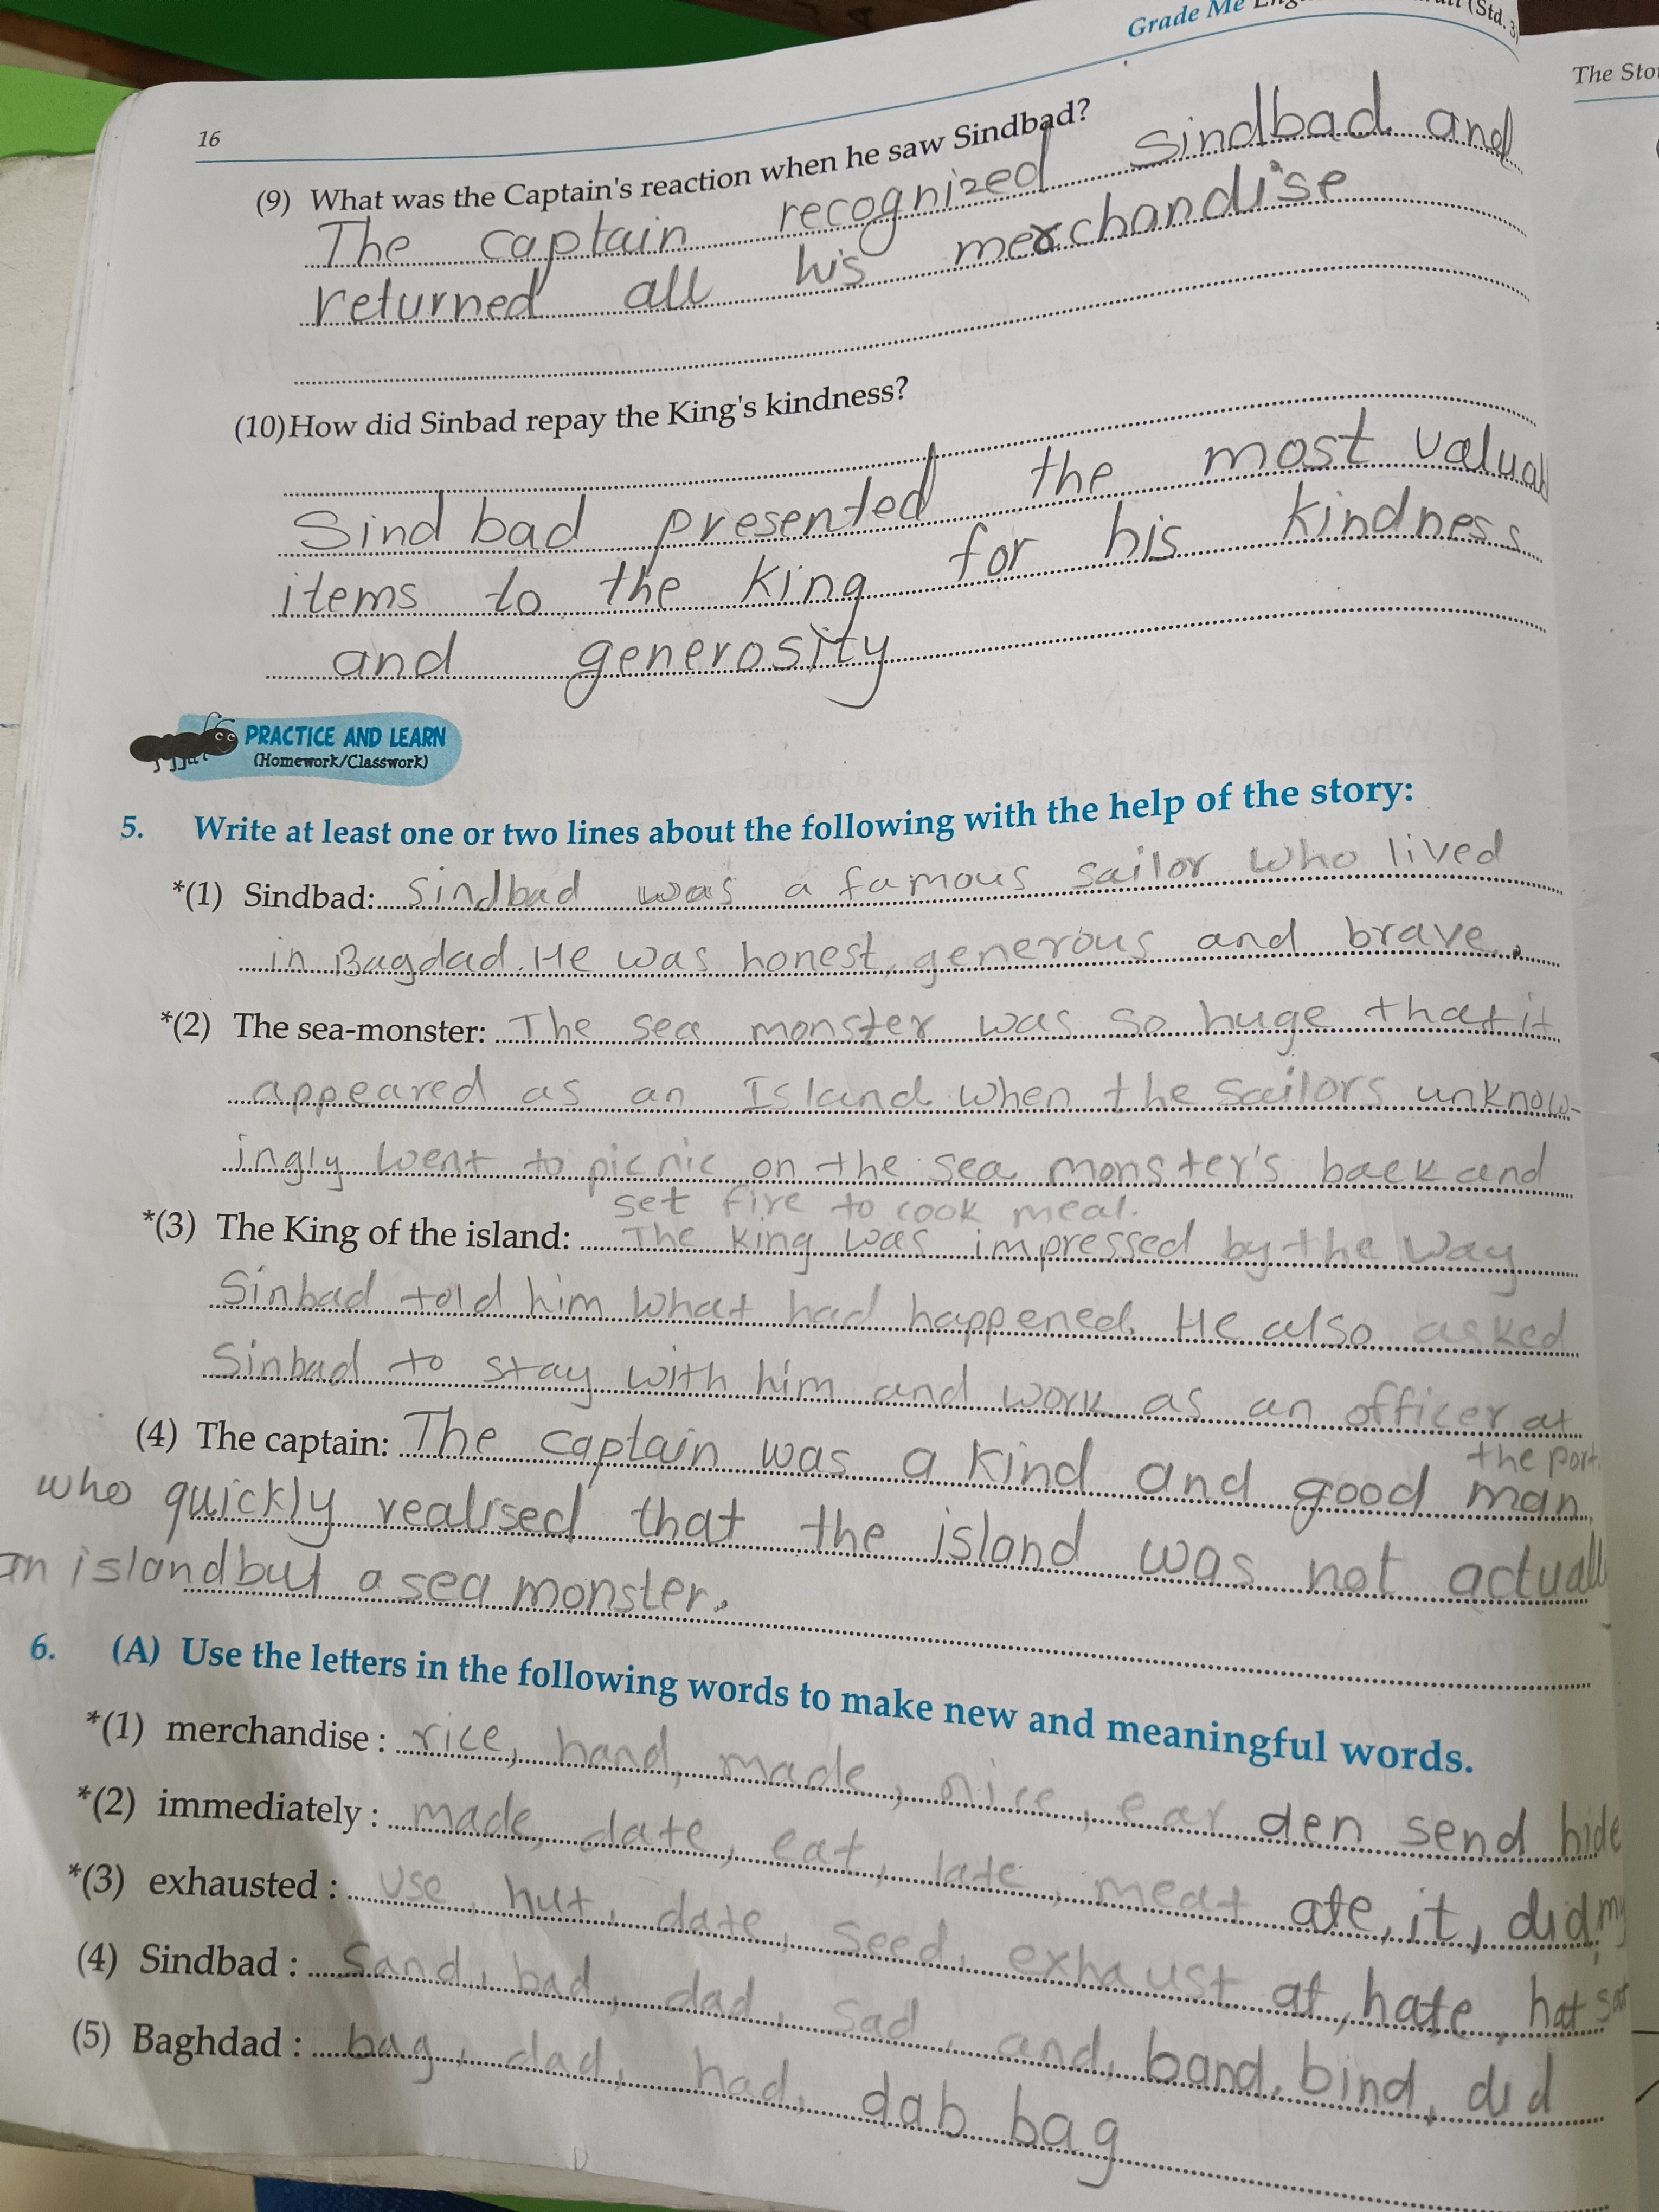 Grade Me
(Std. 3)
The
16
(9) What was the Captain's reaction when he saw Sindbad?
The captain recognized sindbad and
returned all his merchandise
(10) How did Sinbad repay the King's kindness?
Sindbad presented the most valual
items to the king for his kindness
and generosity
PRACTICE AND LEARN
(Homework/Classwork)
5. Write at least one or two lines about the following with the help of the story:
*(1) Sindbad: Sindbad was a famous sailor who lived
in Bagdad. He was honest, generous and brave.
*(2) The sea-monster: The sea monster was so huge that it
appeared as an Island when the sailors unknow-
ingly went to picnic on the sea monster's back and
set fire to cook meal.
*(3) The King of the island: The king was impressed by the way
Sinbad told him what had happened. He also asked
Sinbad to stay with him and work as an officer at
the port.
(4) The captain: The captain was a kind and good man
who quickly realised that the island was not actuall
an island but a sea monster.
6. (A) Use the letters in the following words to make new and meaningful words.
*(1) merchandise : rice, hand, made, nice, ear den send hide
*(2) immediately : made, date, eat, late, meat ate, it, did, my
*(3) exhausted : use, hut, date, seed, exhaust at, hate, hat
(4) Sindbad : Sand, bad, dad, sad, and, band, bind, did
(5) Baghdad : bag, dad, had, dab bag